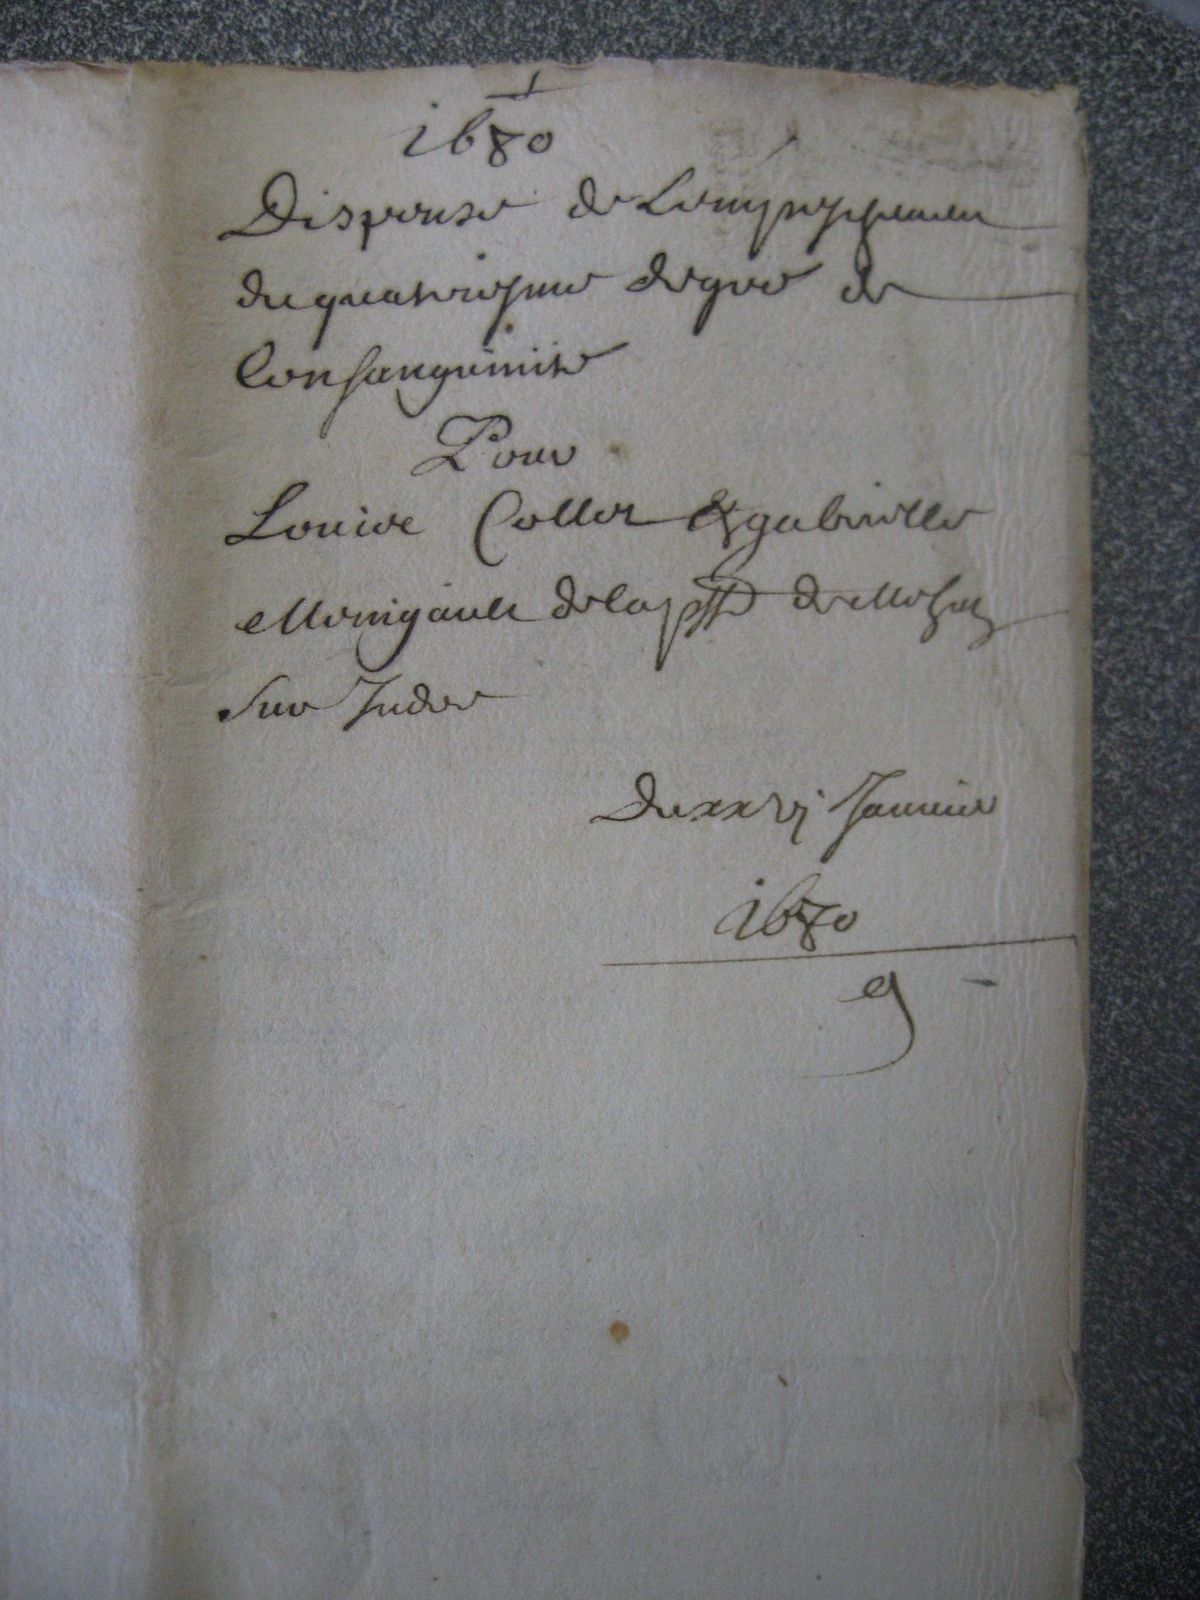 1680
Dispense de Lempeschement
du quatriesme degre de
Consanguinité
Pour
Louise Collet & gabrielle
Menigault de la psse de
Sur Indre
Du xxvj Januier
1680